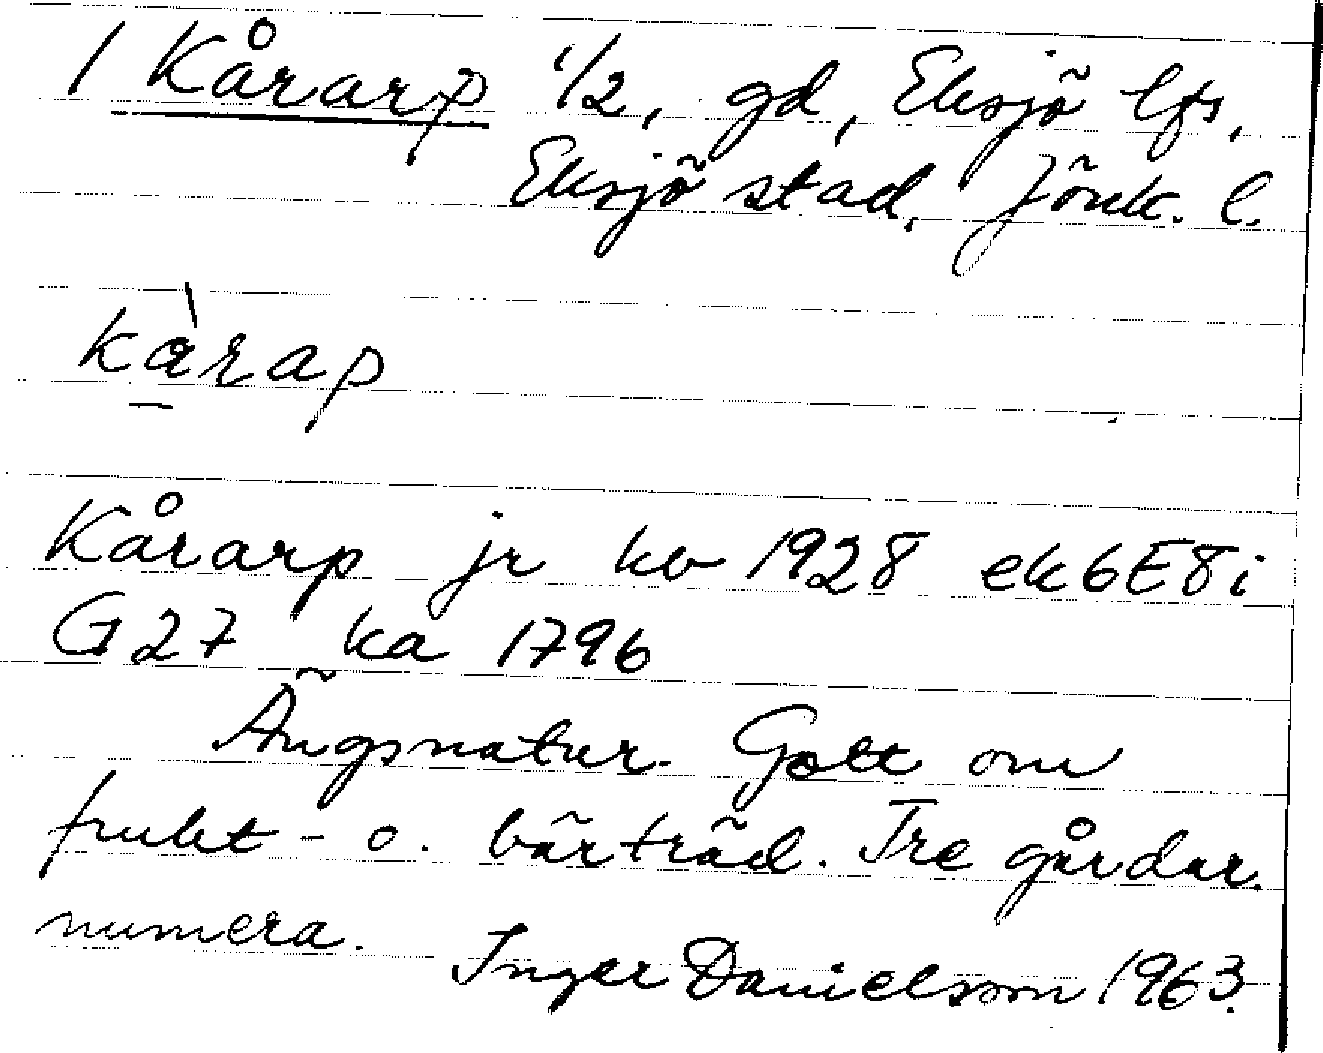 1 Kårarp 1/2, gd, Eksjö lfs,
Eksjö stad, Jönk. l.
kàrap
Kårarp jr kv 1928 ek6E8i
G27 ka 1796
Ängsnatur. Gott om
frukt- o. bärträd. Tre gårdar
numera.
Inger Danielsson 1963.